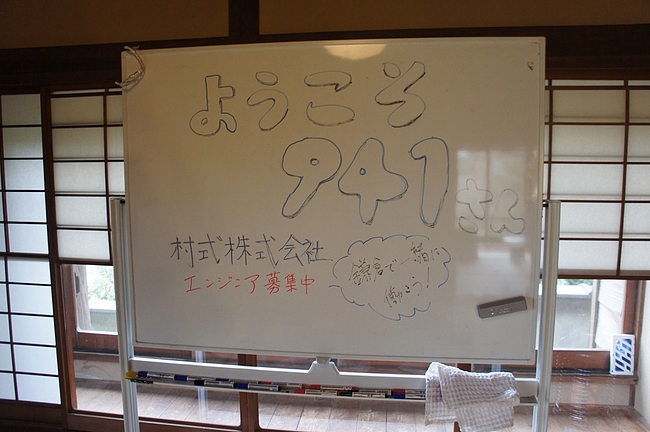 ようこそ
941さん
村式株式会社
エンジニア募集中
鎌倉で一緒に
働こう!